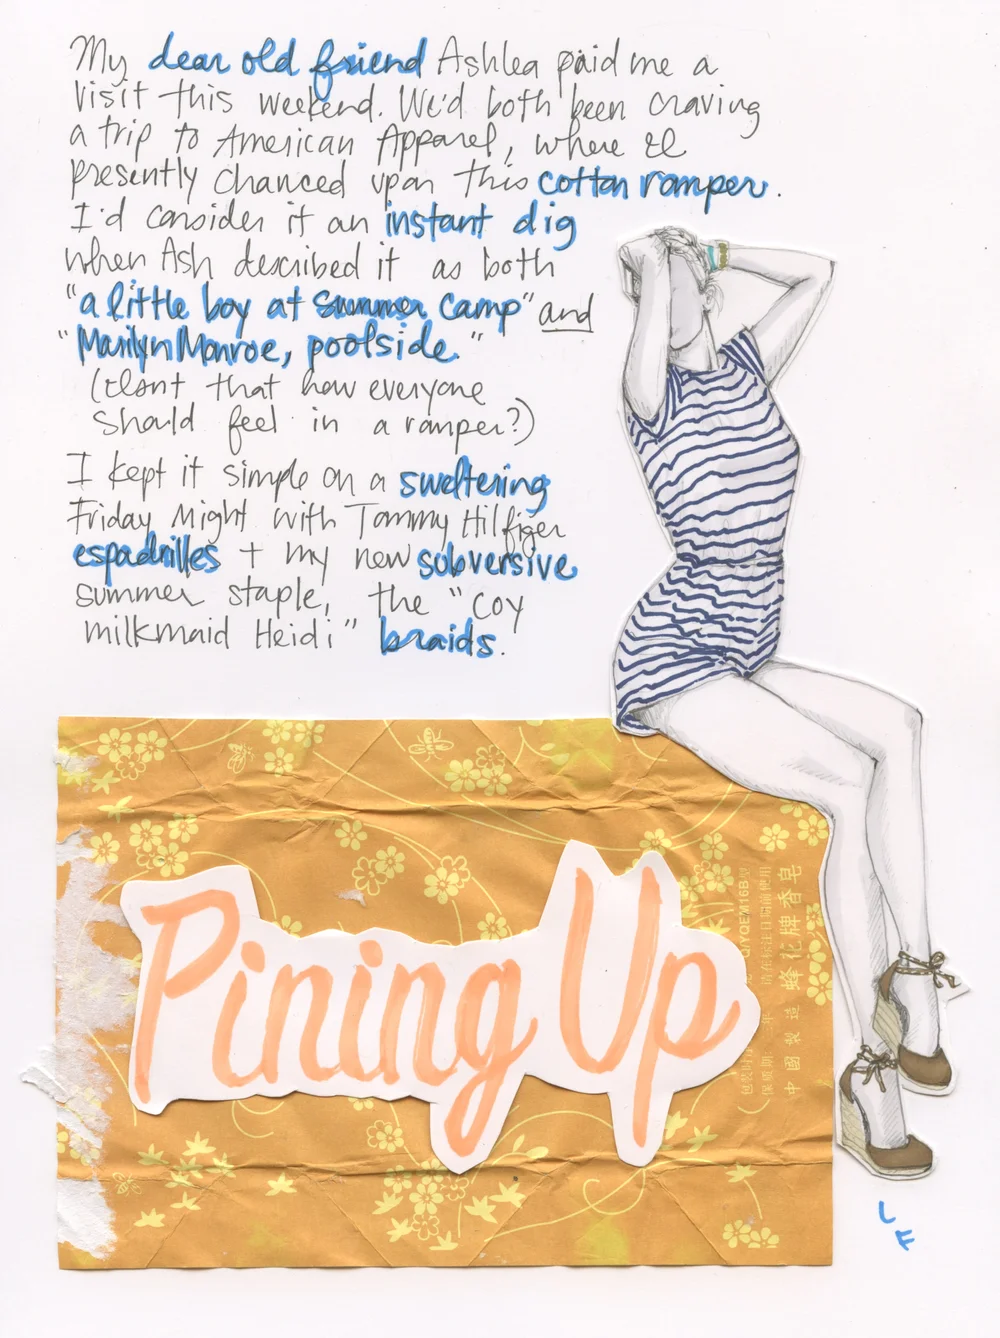 My dear old friend Ashlea paid me a
visit this weekend. We'd both been craving
a trip to American Apparel, where I
presently chanced upon this cotton romper.
I'd consider it an instant dig
when Ash described it as both
"a little boy at summer camp" and
"Marilyn Monroe, poolside."
(Isn't that how everyone
should feel in a romper?)
I kept it simple on a sweltering
Friday Night with Tommy Hilfiger
espadrilles + my new subversive
summer staple, the "coy
milkmaid Heidi" braids.
Pining Up
Q/YQEM16B
请在标注日期前使用
蜂花牌香皂
中國製造
LF